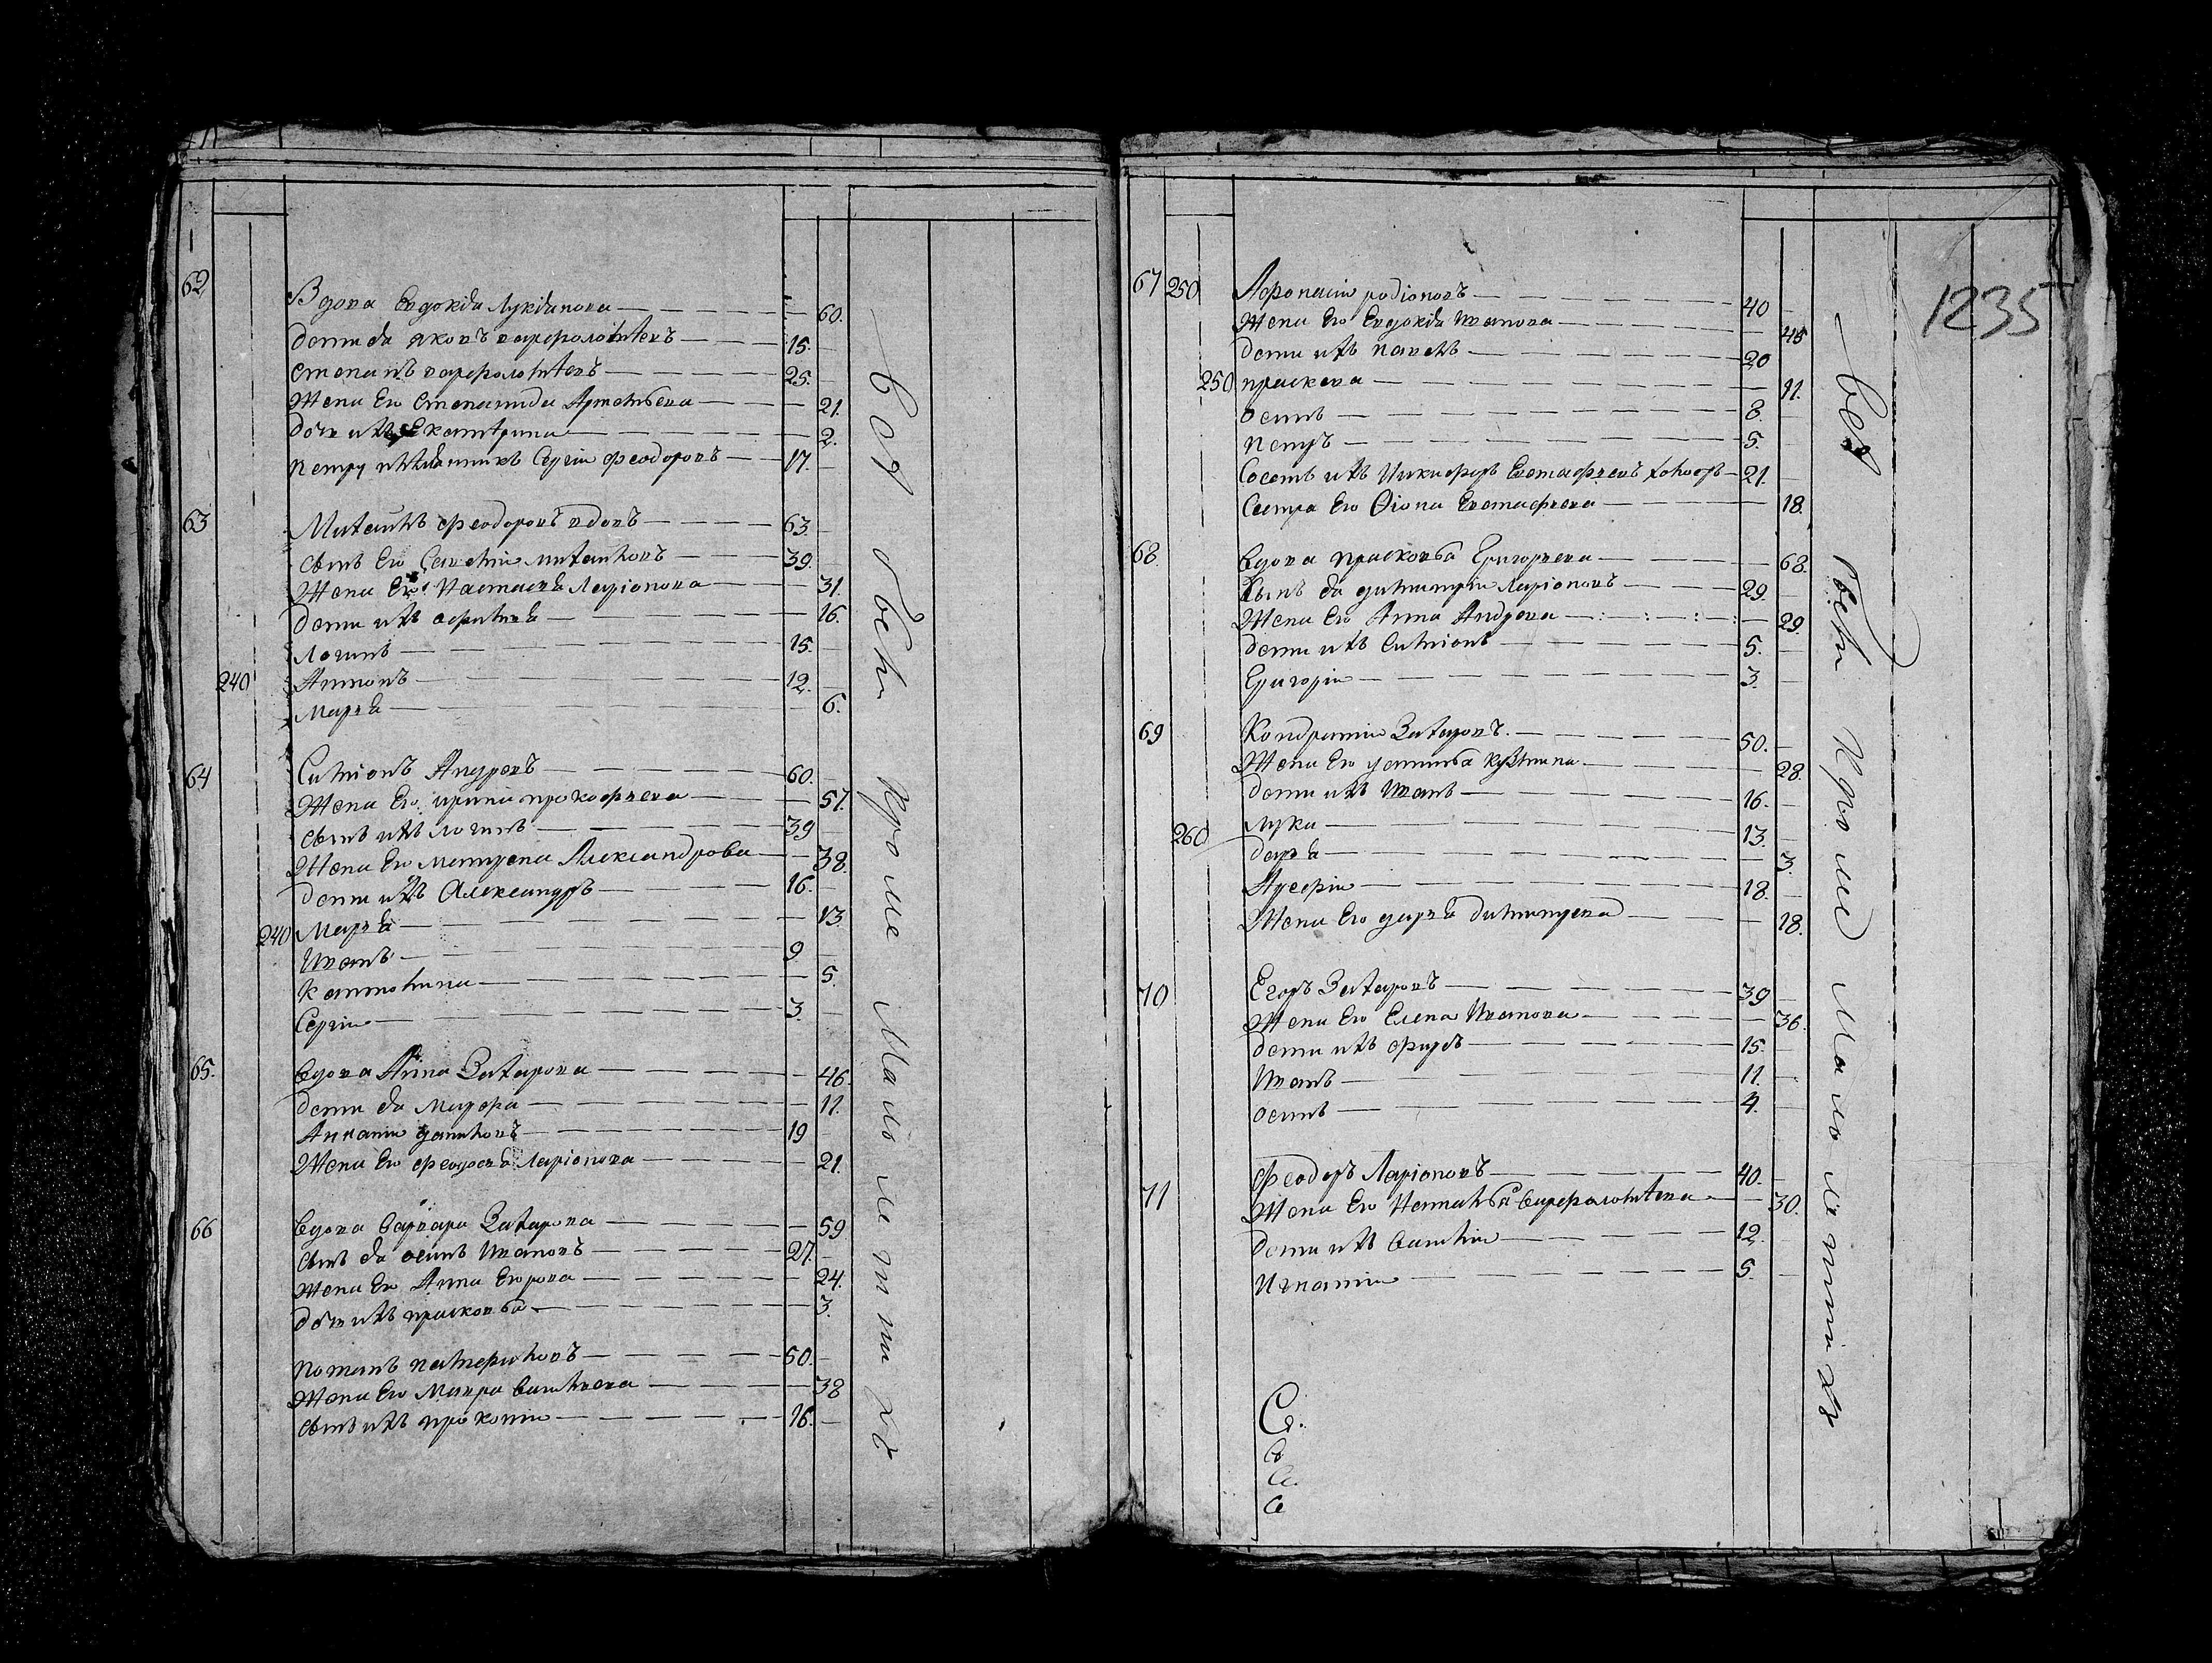 62 Вдова Евдокіѧ Лукіѧнова 60.
дети еѧ яковъ варфоломеевъ 15.
степанъ варфоломеевъ 25.
Жена Его Степанида Артемьева 21.
дочь ихъ Екатерина 2.
петру племянникъ Сергіи феодоровъ 17.
63 Михаилъ феодоровъ вдовъ 63.
сынъ Его Савелии михаиловъ 39.
Жена Его Настасьѧ Ларіонова 31.
дети ихъ афимьѧ 16.
Логинъ 15.
240 Антонъ 12.
Марьѧ 6.
64 Симіонъ Андревъ 60.
Жена Его ирина прокофьева 57.
сынъ ихъ логинъ 39
Жена Его матрена Александрова 38.
дети ихъ Александръ 16.
240 Марьѧ 13.
Иванъ 9
Каттолина 5.
Сергіи 3.
65. Вдова Анна Захарова 46.
дети еѧ Марфа 11.
Анпани даниловъ 19
Жена Его феодосьѧ Ларіонова 21.
66 Вдова Варвара Захарова 59
сынъ еѧ осипъ Ивановъ 27.
жена Его Анна Егорова 24.
дочь ихъ прасковьѧ 3.
потапъ памфиловъ 50.
Жена Его Мавра Василева 38
сынъ ихъ прокопіи 16.
Всѧ Доели Кроме Малолетнихъ
1235
67 250 Афонасіи родіоновъ 40
Жена Его Евдокіѧ Иванова 45
дети ихъ павелъ 20
250 праскева 11.
осипъ 8.
петръ 5.
Соседъ ихъ Никифоръ Евстафьевъ холостъ 21.
Сестра Его Ѳіона Евстафьева 18.
68. Вдова прасковьѧ Григорьева 68.
Сынъ еѧ димитріи Ларіоновъ 29.
Жена Его Анна Андрева 29.
дети ихъ Симіонъ 5.
Григоріи 3.
69 Кондратіи Захаровъ 50.
Жена Его устиньѧ Кузмина 28.
дети ихъ Иванъ 16.
260 лука 13.
дарьѧ 3.
Арсефіи 18.
Жена Его дарьѧ димитрева 18.
70 Егоръ Захаровъ 39
Жена Его Елена Иванова 36.
дети ихъ фирсъ 15.
Иванъ 11.
осипъ 4.
71 Феодоръ Ларіоновъ 40.
Жена Его Наталья варфоломеева 30.
дети ихъ Василіи 12.
Игнатіи 5.
Всѧ Доели Кроме Малолетнихъ